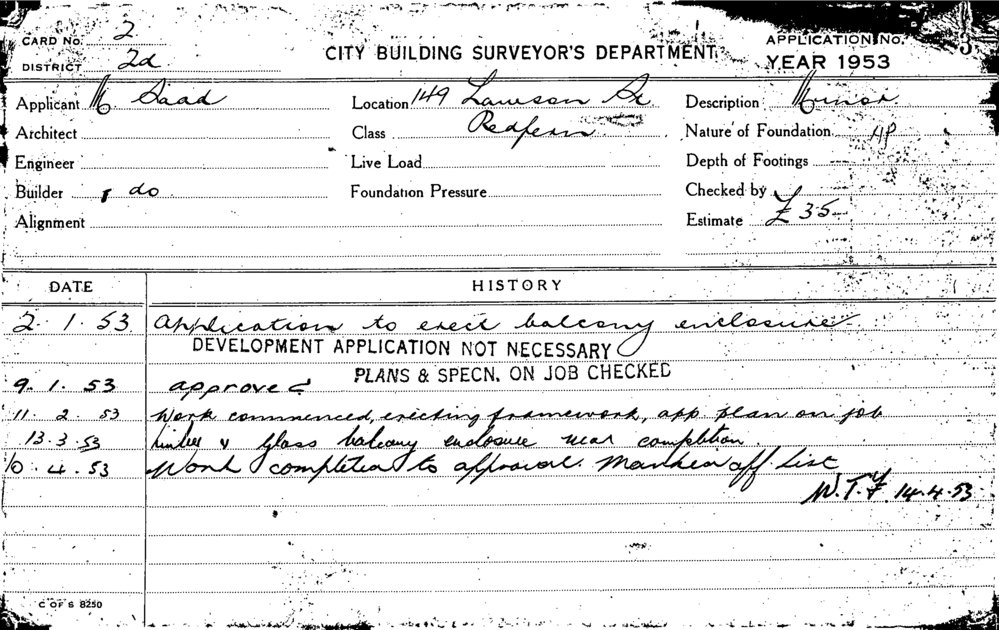 CARD NO. 2
DISTRICT 2d
CITY BUILDING SURVEYOR'S DEPARTMENT.
APPLICATION NO. 3
YEAR 1953
Applicant M. Saad
Location 149 Lawson St
Description Minor
Architect
Class Redfern
Nature of Foundation
Engineer
Live Load
Depth of Footings
Builder do
Foundation Pressure
Checked by
Alignment
Estimate £35
DATE
HISTORY
2. 1. 53 Application to erect balcony enclosure
DEVELOPMENT APPLICATION NOT NECESSARY
PLANS & SPECN. ON JOB CHECKED
9. 1. 53 approved
11. 2. 53 Work commenced, erecting framework, app. plan on job
13. 3. 53 timber & glass balcony enclosure near completion.
10. 4. 53 Work completed to approval. Marked off List
W.T.F. 14.4.53
C OF S 8250